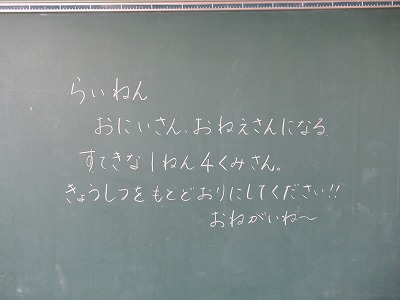 らいねん
おにいさん、おねえさんになる
すてきな1ねん4くみさん。
きょうしつをもとどおりにしてください!!
おねがいね〜